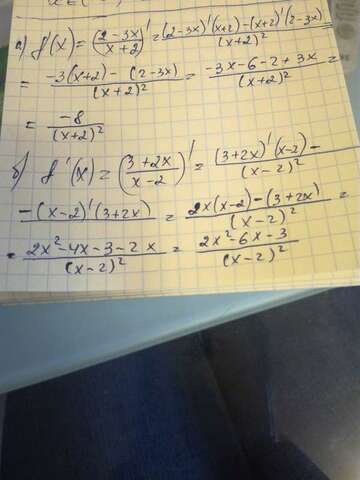 а) f'(x) = (2-3x / x+2)' = (2-3x)'(x+2)-(x+2)'(2-3x) / (x+2)² =
= -3(x+2) - (2-3x) / (x+2)² = -3x-6-2+3x / (x+2)² =
= -8 / (x+2)²
б) f'(x) = (3+2x / x-2)' = (3+2x)'(x-2) - / (x-2)²
-(x-2)'(3+2x) = 2x(x-2)-(3+2x) / (x-2)² =
= 2x²-4x-3-2x / (x-2)² = 2x²-6x-3 / (x-2)²